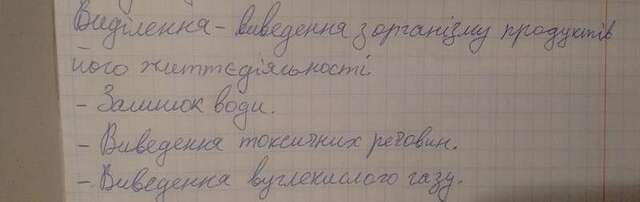 Виділення – виведення з організму продуктів
його життєдіяльності.
- Залишок води.
- Виведення токсичних речовин.
- Виведення вуглекислого газу.